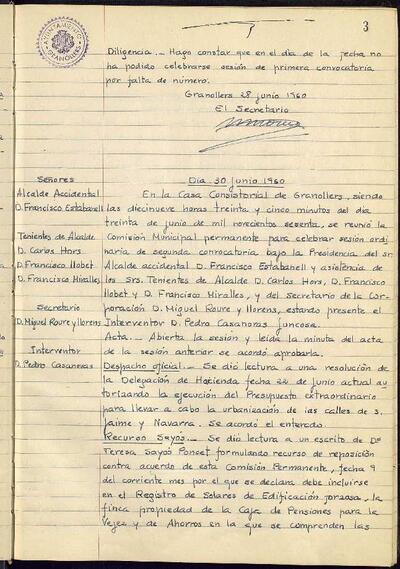 3
AYUNTAMIENTO
GRANOLLERS
Diligencia.- Hago constar que en el día de la fecha no
ha podido celebrarse sesión de primera convocatoria
por falta de número.
Granollers 28 junio 1960
El Secretario
Señores
Alcalde Accidental
D. Francisco Estabanell
Tenientes de Alcalde
D. Carlos Hors
D. Francisco Llobet
D. Francisco Miralles
Secretario
D. Miguel Roure y Llorens
Interventor
D. Pedro Casanovas
Día 30 junio 1960
En la Casa Consistorial de Granollers, siendo
las diecinueve horas treinta y cinco minutos del día
treinta de junio de mil novecientos sesenta, se reunió la
Comisión Municipal permanente para celebrar sesión ordi
naria de segunda convocatoria bajo la Presidencia del sr.
Alcalde accidental D. Francisco Estabanell y asistencia de
los Srs. Tenientes de Alcalde D. Carlos Hors, D. Francisco
Llobet y D. Francisco Miralles, y del Secretario de la Cor-
poración D. Miguel Roure y Llorens, estando presente el
Interventor D. Pedro Casanovas Juncosa.
Acta.- Abierta la sesión y leída la minuta del acta
de la sesión anterior se acordó aprobarla.
Despacho oficial.- Se dió lectura a una resolución de
la Delegación de Hacienda fecha 22 de junio actual au
torizando la ejecución del Presupuesto extraordinario
para llevar a cabo la urbanización de las calles de S.
Jaime y Navarra. Se acordó el enterado.
Recurso Sayós.- Se dió lectura a un escrito de Dª
Teresa Sayós Poncet formulando recurso de reposición
contra acuerdo de esta Comisión Permanente, fecha 9
del corriente mes por el que se declara debe incluirse
en el Registro de Solares de Edificación forzosa, la
finca propiedad de la Caja de Pensiones para la
Vejez y de Ahorros en la que se comprenden las